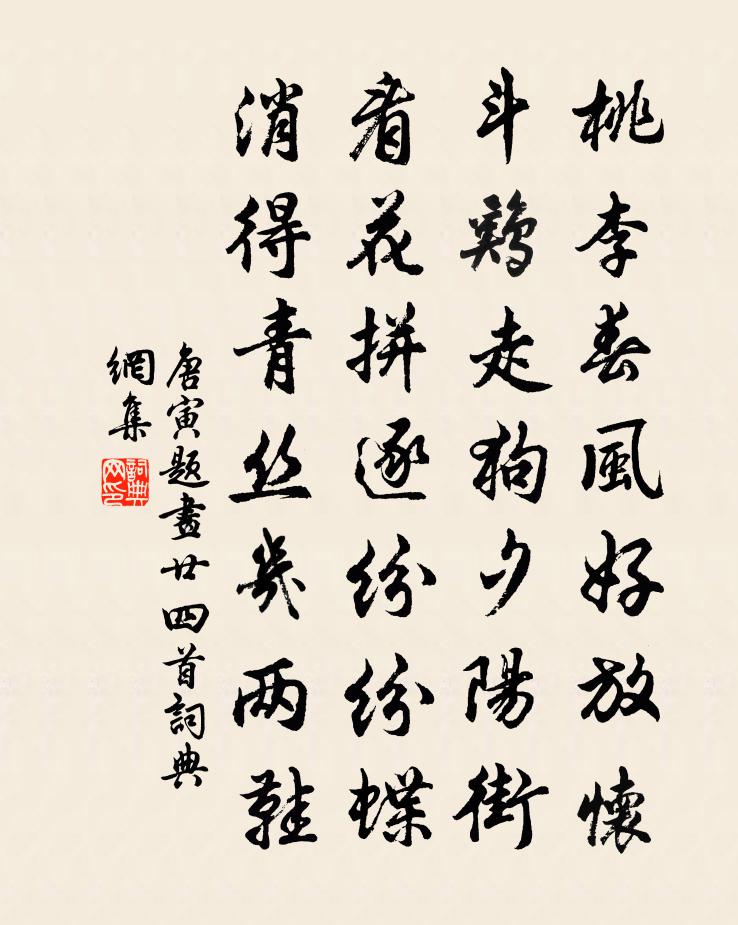 桃李春風好放懷
斗鷄走狗夕陽街
看花拼逐紛紛蝶
消得青丝幾两鞋
唐寅题畫廿四首詞典
網集
詞典网印